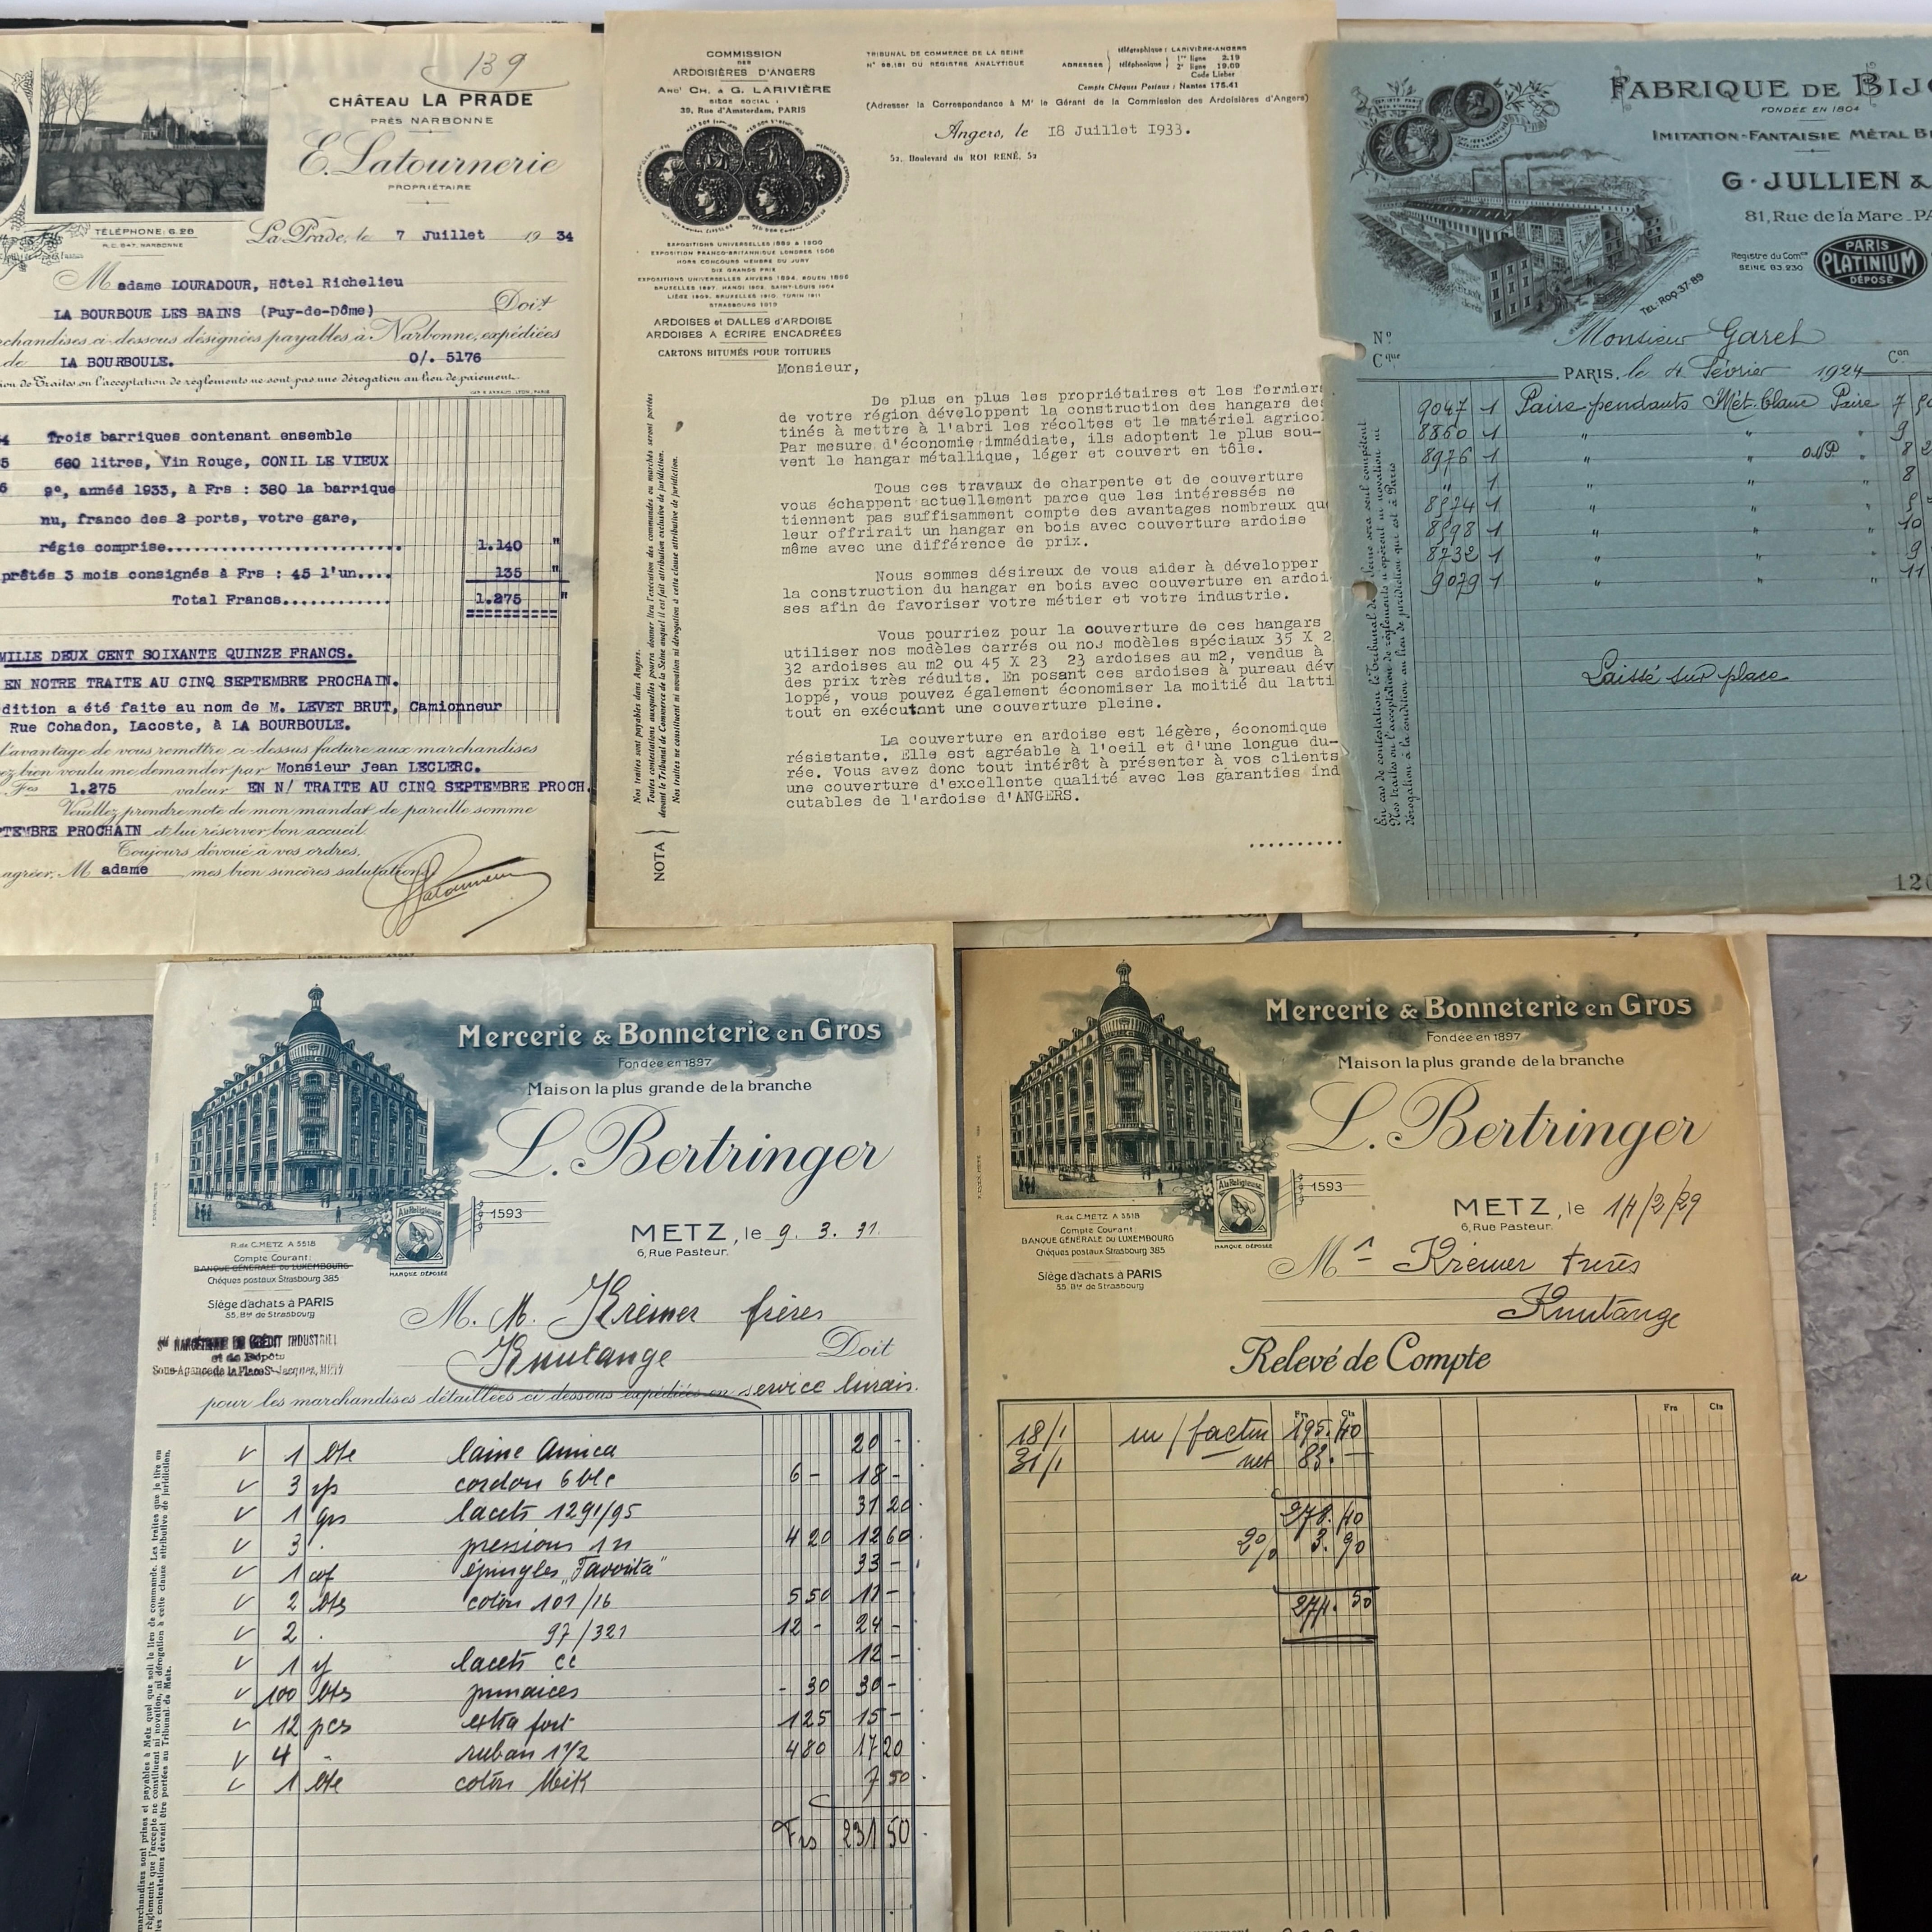 139
CHÂTEAU LA PRADE
PRÈS NARBONNE
E. Latournerie
PROPRIÉTAIRE
TÉLÉPHONE: 6.28
R.C. 847, NARBONNE
La Prade, le 7 Juillet 1934
Madame LOURADOUR, Hôtel Richelieu
Doit
LA BOURBOUE LES BAINS (Puy-de-Dôme)
rchandises ci-dessous désignées, payables à Narbonne, expédiées
de LA BOURBOULE. 0/. 5176
ion de Traites ou l'acceptation de règlements ne sont pas une dérogation au lieu de paiement.
4 Trois barriques contenant ensemble
5 660 litres, Vin Rouge, CONIL LE VIEUX
6 9°, année 1933, à Frs : 380 la barrique
nu, franco des 2 ports, votre gare,
régie comprise.......................... 1.140 "
prêtés 3 mois consignés à Frs : 45 l'un.... 135 "
Total Francs............ 1.275 "
MILLE DEUX CENT SOIXANTE QUINZE FRANCS.
EN NOTRE TRAITE AU CINQ SEPTEMBRE PROCHAIN.
dition a été faite au nom de M. LEVET BRUT, Camionneur
Rue Cohadon, Lacoste, à LA BOURBOULE.
l'avantage de vous remettre ci-dessus facture aux marchandises
ez bien voulu me demander par Monsieur Jean LECLERC.
Fcs 1.275 valeur EN N/ TRAITE AU CINQ SEPTEMBRE PROCH.
Veuillez prendre note de mon mandat de pareille somme
PTEMBRE PROCHAIN et lui réserver bon accueil.
Toujours dévoué à vos ordres,
agréer, Madame mes bien sincères salutations
COMMISSION
DES
ARDOISIÈRES D'ANGERS
ANCt CH. & G. LARIVIÈRE
SIÈGE SOCIAL :
39, Rue d'Amsterdam, PARIS
TRIBUNAL DE COMMERCE DE LA SEINE
N° 98.181 DU REGISTRE ANALYTIQUE
ADRESSES
télégraphique : LARIVIÈRE-ANGERS
téléphonique 1re ligne 2.19
2e ligne 19.09
Code Lieber
Compte Chèques Postaux : Nantes 175.41
(Adresser la Correspondance à Mr le Gérant de la Commission des Ardoisières d'Angers)
Angers, le 18 Juillet 1933.
52, Boulevard du ROI RENÉ, 52
EXPOSITIONS UNIVERSELLES 1889 & 1900
EXPOSITION FRANCO-BRITANNIQUE LONDRES 1908
HORS CONCOURS MEMBRE DU JURY
DIX GRANDS PRIX
EXPOSITIONS UNIVERSELLES ANVERS 1894, ROUEN 1896
BRUXELLES 1897, HANOI 1902, SAINT-LOUIS 1904
LIÈGE 1905, BRUXELLES 1910, TURIN 1911
STRASBOURG 1919
ARDOISES et DALLES d'ARDOISE
ARDOISES A ÉCRIRE ENCADRÉES
CARTONS BITUMÉS POUR TOITURES
Monsieur,
De plus en plus les propriétaires et les fermiers
de votre région développent la construction des hangars des
tinés à mettre à l'abri les récoltes et le matériel agricol
Par mesure d'économie immédiate, ils adoptent le plus sou-
vent le hangar métallique, léger et couvert en tôle.
Tous ces travaux de charpente et de couverture
vous échappent actuellement parce que les intéressés ne
tiennent pas suffisamment compte des avantages nombreux que
leur offrirait un hangar en bois avec couverture ardoise
même avec une différence de prix.
Nous sommes désireux de vous aider à développer
la construction du hangar en bois avec couverture en ardoi
ses afin de favoriser votre métier et votre industrie.
Vous pourriez pour la couverture de ces hangars
utiliser nos modèles carrés ou nos modèles spéciaux 35 X 2
32 ardoises au m2 ou 45 X 23 23 ardoises au m2, vendus à
des prix très réduits. En posant ces ardoises à pureau dév
loppé, vous pouvez également économiser la moitié du latti
tout en exécutant une couverture pleine.
La couverture en ardoise est légère, économique
résistante. Elle est agréable à l'oeil et d'une longue du-
rée. Vous avez donc tout intérêt à présenter à vos clients
une couverture d'excellente qualité avec les garanties ind
cutables de l'ardoise d'ANGERS.
..........
NOTA
Nos traites sont payables dans Angers.
Toutes contestations auxquelles pourra donner lieu l'exécution des commandes ou marchés seront portées
devant le Tribunal de Commerce de la Seine auquel il est fait attribution exclusive de juridiction.
Nos traites ne constituent ni novation ni dérogation à cette clause attributive de juridiction.
FABRIQUE DE BIJO
FONDÉE EN 1804
IMITATION-FANTAISIE MÉTAL B
G. JULLIEN &
81, Rue de la Mare _ PA
Registre du Comce
SEINE 83.230
PARIS
PLATINIUM
DÉPOSÉ
TEL: Roq. 37-89
Monsieur Garel
N°
Cque
Con
PARIS, le 4 Février 1924
9047 1 Paire pendants Mét. blanc Paire 7
8860 1 " " " 9
8976 1 " " " 8 2
" 1 " " " 8
8574 1 " " "
8598 1 " " " 10
8732 1 " " " 9
9079 1 " " " 11
Laissé sur place
En cas de contestation le Tribunal de la Seine sera seul compétent
Nos traites ou l'acceptation de règlements n'opèrent ni novation ni
dérogation à la condition au lieu de juridiction qui est à Paris
120
Mercerie & Bonneterie en Gros
Fondée en 1897
Maison la plus grande de la branche
L. Bertringer
A la Religieuse
MARQUE DÉPOSÉE
1593
METZ, le 9. 3. 31.
6, Rue Pasteur.
R. de C. METZ A 5518
Compte Courant:
BANQUE GÉNÉRALE DU LUXEMBOURG
Chèques postaux Strasbourg 385
Siège d'achats à PARIS
55, Bd de Strasbourg
Sté NANCÉIENNE DE CRÉDIT INDUSTRIEL
et de Dépôts
Sous-Agence de la Place St-Jacques, METZ
M. M. Krémer frères
Knutange Doit
pour les marchandises détaillées ci dessous expédiées en service livrais.
1 bte laine Amica 20 -
3 cordon 6 6 - 18 -
1 grs lacets 1291/95 31 20
3 . pressions 4 20 12 60
1 épingles „Favorita" 33 -
2 bts coton 101/16 5 50 11 -
2 . 97/321 12 - 24 -
1 lacets cc 12 -
100 bts punaises - 30 30 -
12 pcs extra fort 1 25 15 -
4 - ruban 1 1/2 4 80 17 20
1 bte coton 7 50
Frs 231 50
Mercerie & Bonneterie en Gros
Fondée en 1897
Maison la plus grande de la branche
L. Bertringer
A la Religieuse
MARQUE DÉPOSÉE
1593
METZ, le 14/2/29
6, Rue Pasteur.
R. de C. METZ A 5518
Compte Courant:
BANQUE GÉNÉRALE DU LUXEMBOURG
Chèques postaux Strasbourg 385
Siège d'achats à PARIS
55, Bd de Strasbourg
Mr Krémer frères
Knutange
Relevé de Compte
Frs Cts Frs Cts
18/1 m/factur 195.40
31/1 net 83. -
278.40
2% 3.90
274.50